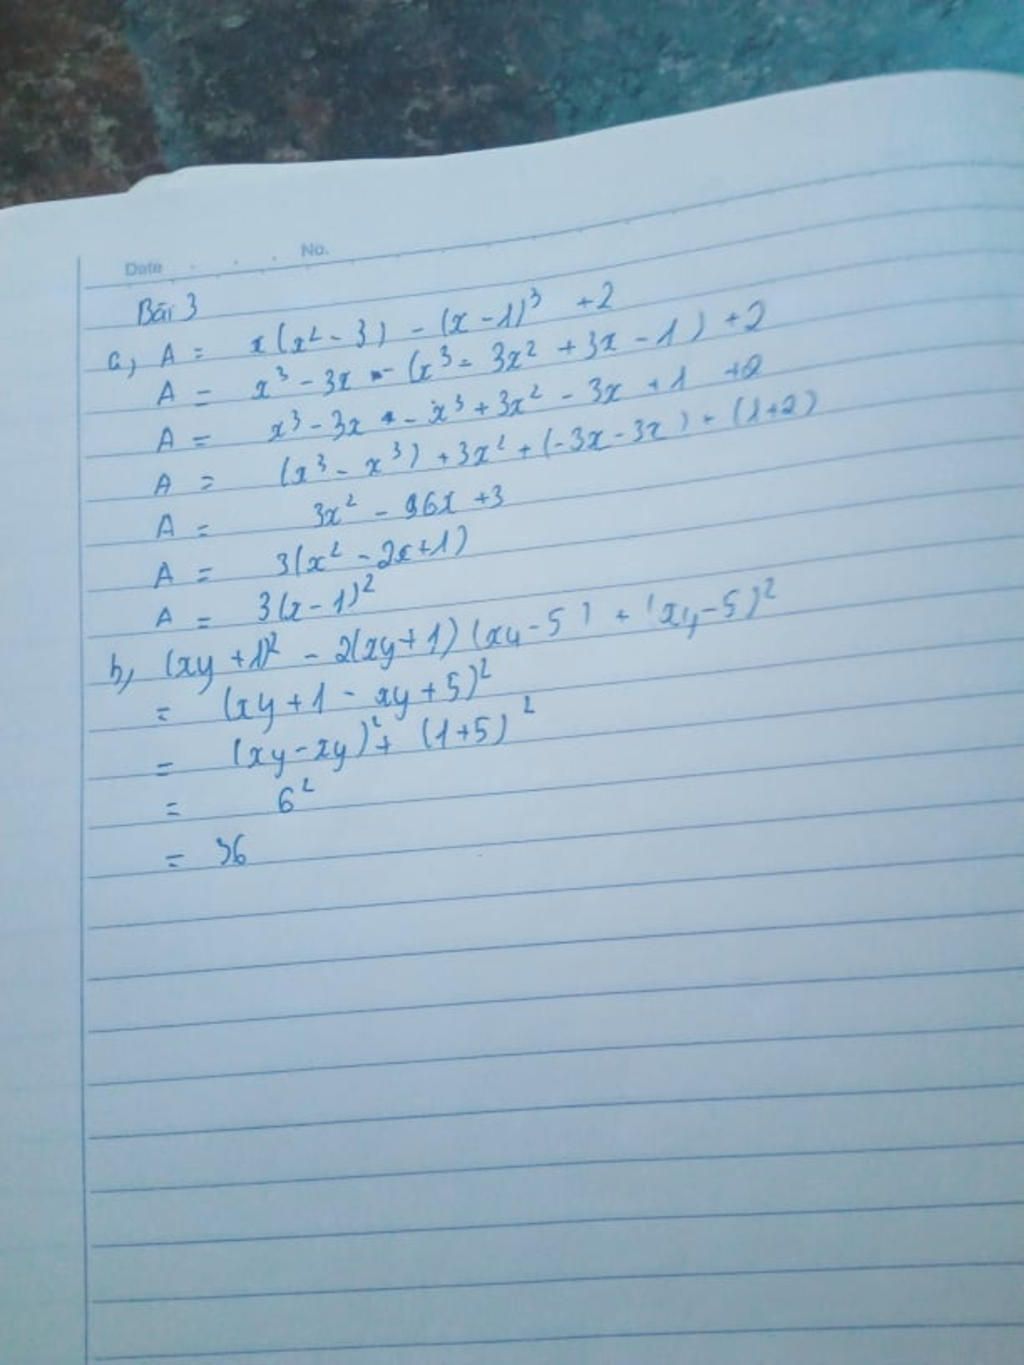 Date . . . No.
Bài 3
a, A = x(x² - 3) - (x - 1)³ +2
A = x³ - 3x - (x³ - 3x² + 3x - 1) +2
A = x³ - 3x - x³ + 3x² - 3x + 1 +2
A = (x³ - x³) + 3x² + (-3x - 3x) + (1+2)
A = 3x² - 6x +3
A = 3(x² - 2x+1)
A = 3(x - 1)²
b, (xy +1)² - 2(xy+1) (xy-5) + (xy-5)²
= (xy+1 - xy+5)²
= (xy-xy)²+ (1+5)²
= 6²
= 36